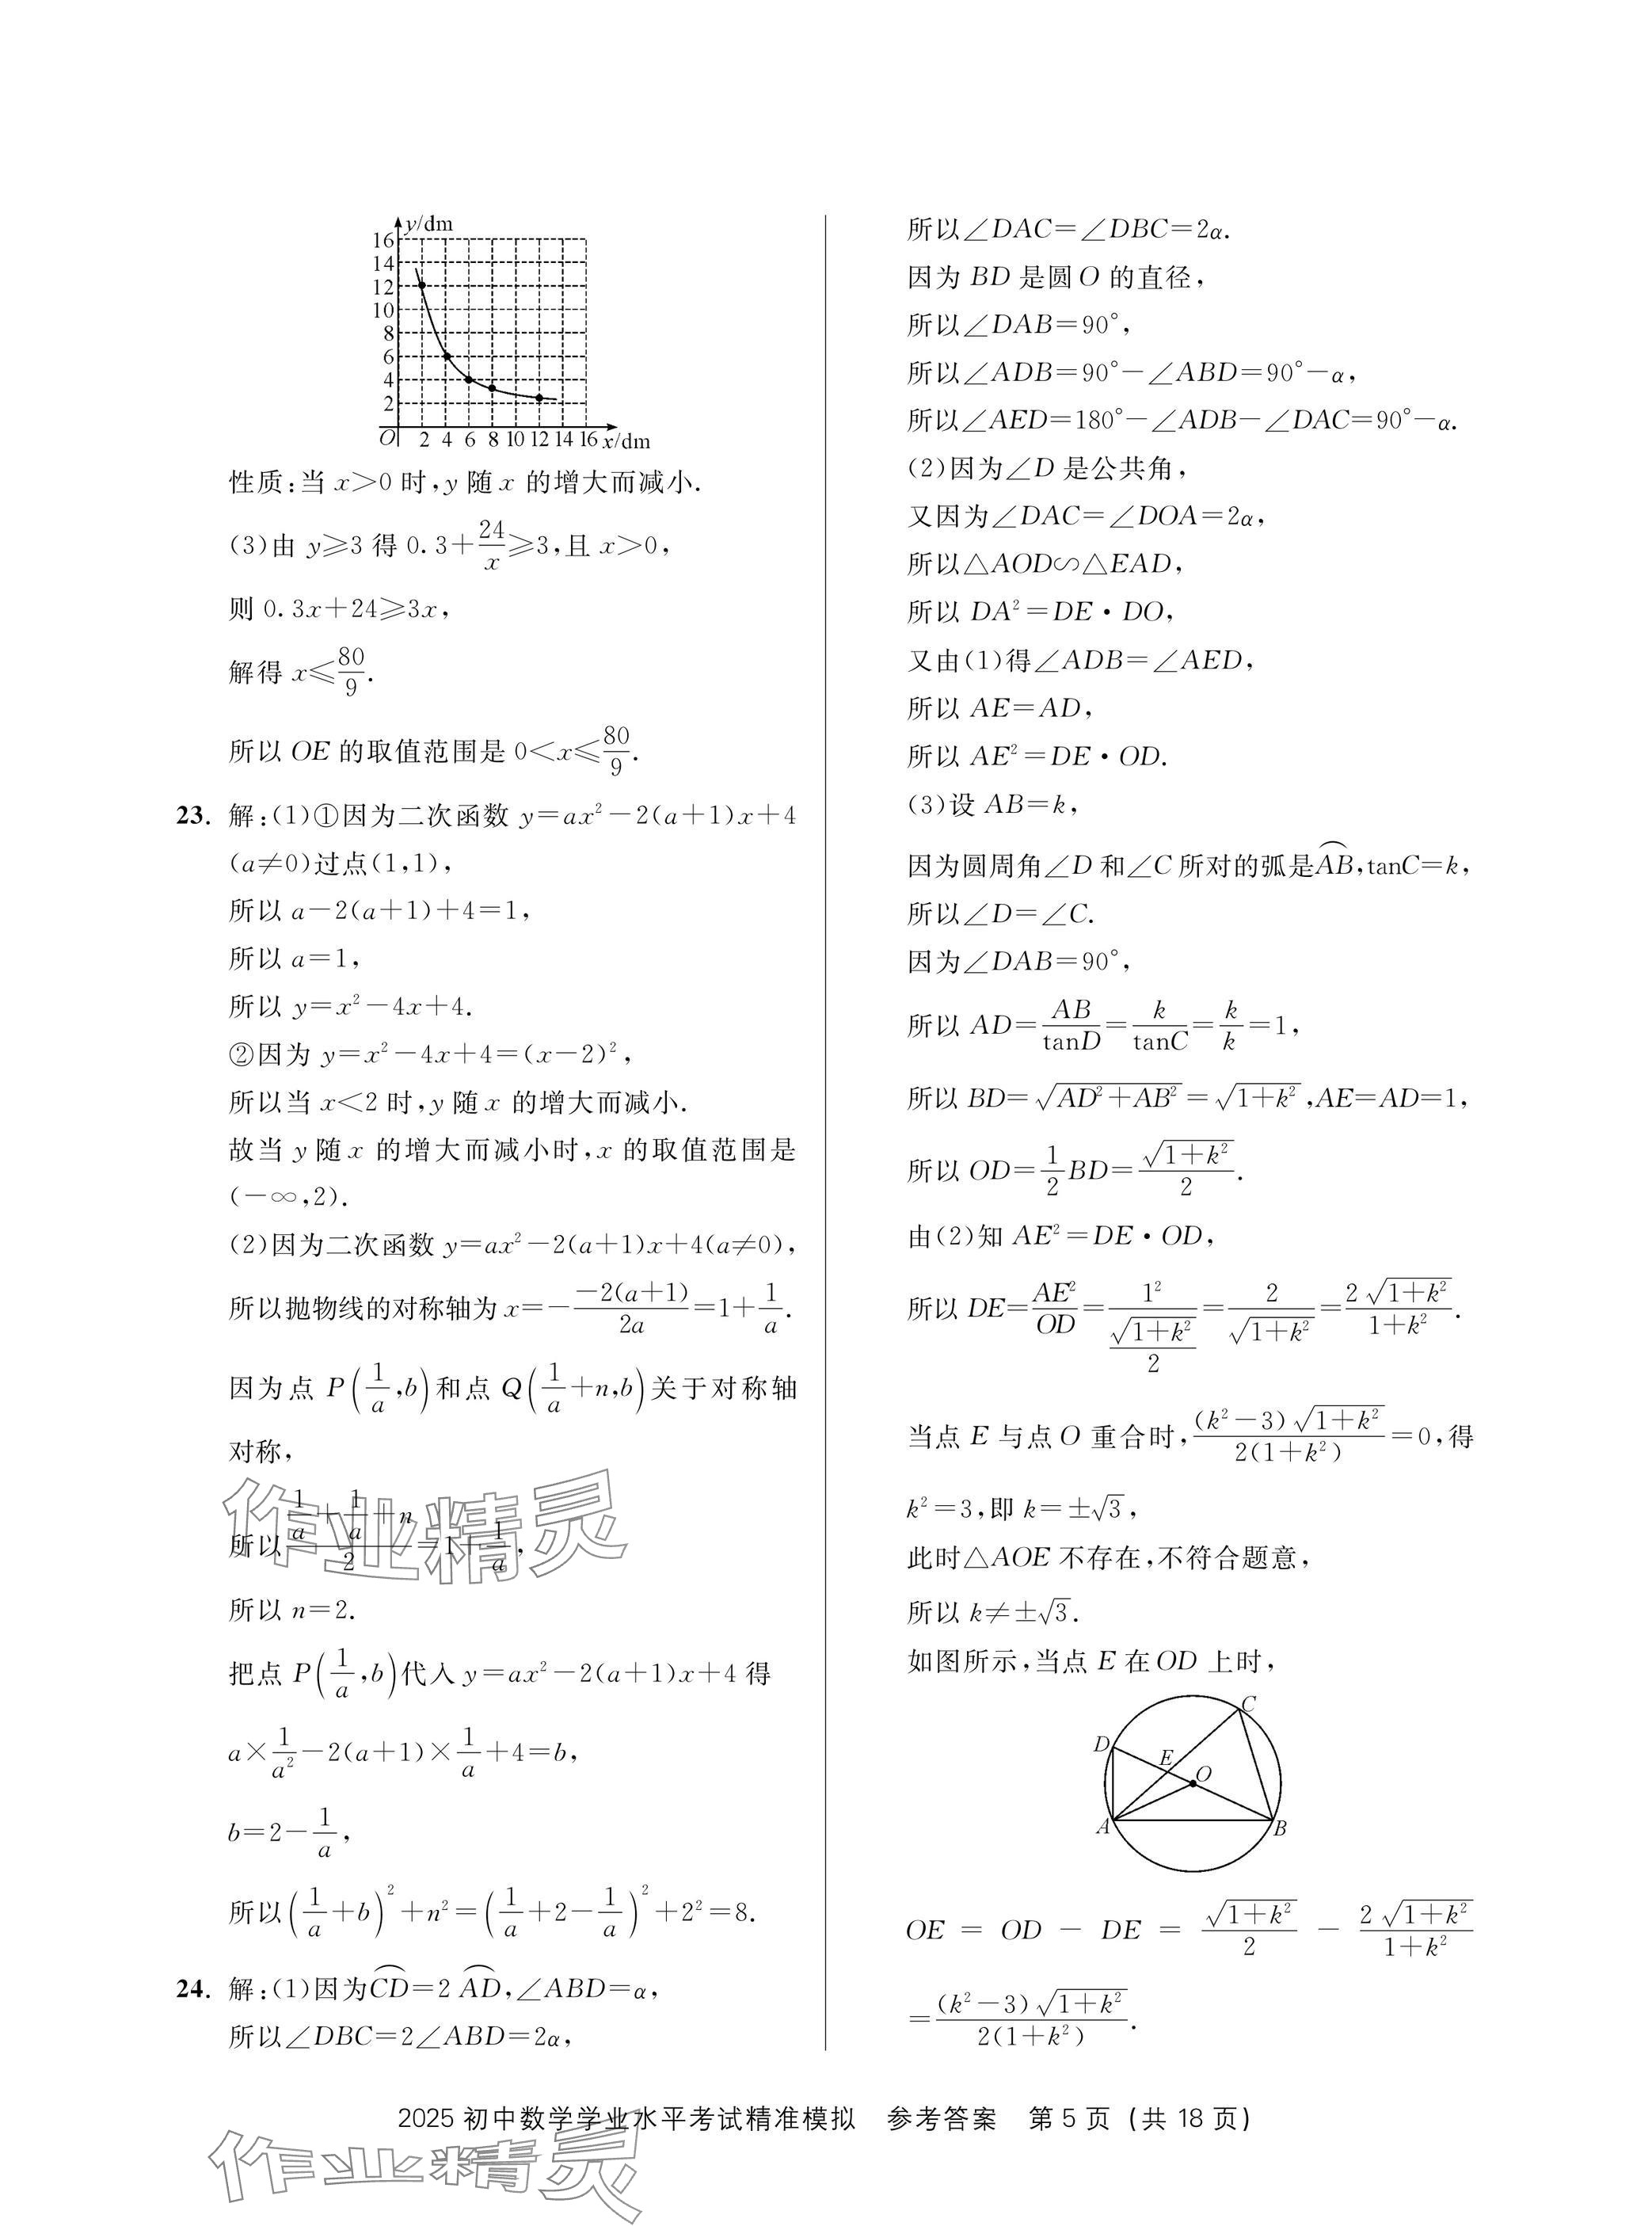 y/dm
16
14
12
10
8
6
4
2
O 2 4 6 8 10 12 14 16 x/dm
性质:当 x>0 时,y 随 x 的增大而减小.
(3)由 y≥3 得 0.3+24/x≥3,且 x>0,
则 0.3x+24≥3x,
解得 x≤80/9.
所以 OE 的取值范围是 0<x≤80/9.
23. 解:(1)①因为二次函数 y=ax²-2(a+1)x+4
(a≠0)过点(1,1),
所以 a-2(a+1)+4=1,
所以 a=1,
所以 y=x²-4x+4.
②因为 y=x²-4x+4=(x-2)²,
所以当 x<2 时,y 随 x 的增大而减小.
故当 y 随 x 的增大而减小时,x 的取值范围是
(-∞,2).
(2)因为二次函数 y=ax²-2(a+1)x+4(a≠0),
所以抛物线的对称轴为 x=-(-2(a+1))/(2a)=1+1/a.
因为点 P(1/a,b)和点 Q(1/a+n,b)关于对称轴
对称,
所以(1/a+1/a+n)/2=1+1/a,
所以 n=2.
把点 P(1/a,b)代入 y=ax²-2(a+1)x+4 得
a×1/a²-2(a+1)×1/a+4=b,
b=2-1/a,
所以(1/a+b)²+n²=(1/a+2-1/a)²+2²=8.
24. 解:(1)因为⌒CD=2 ⌒AD,∠ABD=α,
所以∠DBC=2∠ABD=2α,
所以∠DAC=∠DBC=2α.
因为 BD 是圆 O 的直径,
所以∠DAB=90°,
所以∠ADB=90°-∠ABD=90°-α,
所以∠AED=180°-∠ADB-∠DAC=90°-α.
(2)因为∠D 是公共角,
又因为∠DAC=∠DOA=2α,
所以△AOD∽△EAD,
所以 DA²=DE·DO,
又由(1)得∠ADB=∠AED,
所以 AE=AD,
所以 AE²=DE·OD.
(3)设 AB=k,
因为圆周角∠D 和∠C 所对的弧是⌒AB,tanC=k,
所以∠D=∠C.
因为∠DAB=90°,
所以 AD=AB/tanD=k/tanC=k/k=1,
所以 BD=√(AD²+AB²)=√(1+k²),AE=AD=1,
所以 OD=1/2BD=√(1+k²)/2.
由(2)知 AE²=DE·OD,
所以 DE=AE²/OD=1²/(√(1+k²)/2)=2/√(1+k²)=2√(1+k²)/(1+k²).
当点 E 与点 O 重合时,(k²-3)√(1+k²)/(2(1+k²))=0,得
k²=3,即 k=±√3,
此时△AOE 不存在,不符合题意,
所以 k≠±√3.
如图所示,当点 E 在 OD 上时,
C
D
E
O
A
B
OE = OD - DE = √(1+k²)/2 - 2√(1+k²)/(1+k²)
=(k²-3)√(1+k²)/(2(1+k²)).
2025 初中数学学业水平考试精准模拟 参考答案 第 5 页(共 18 页)
作业精灵
作业精灵